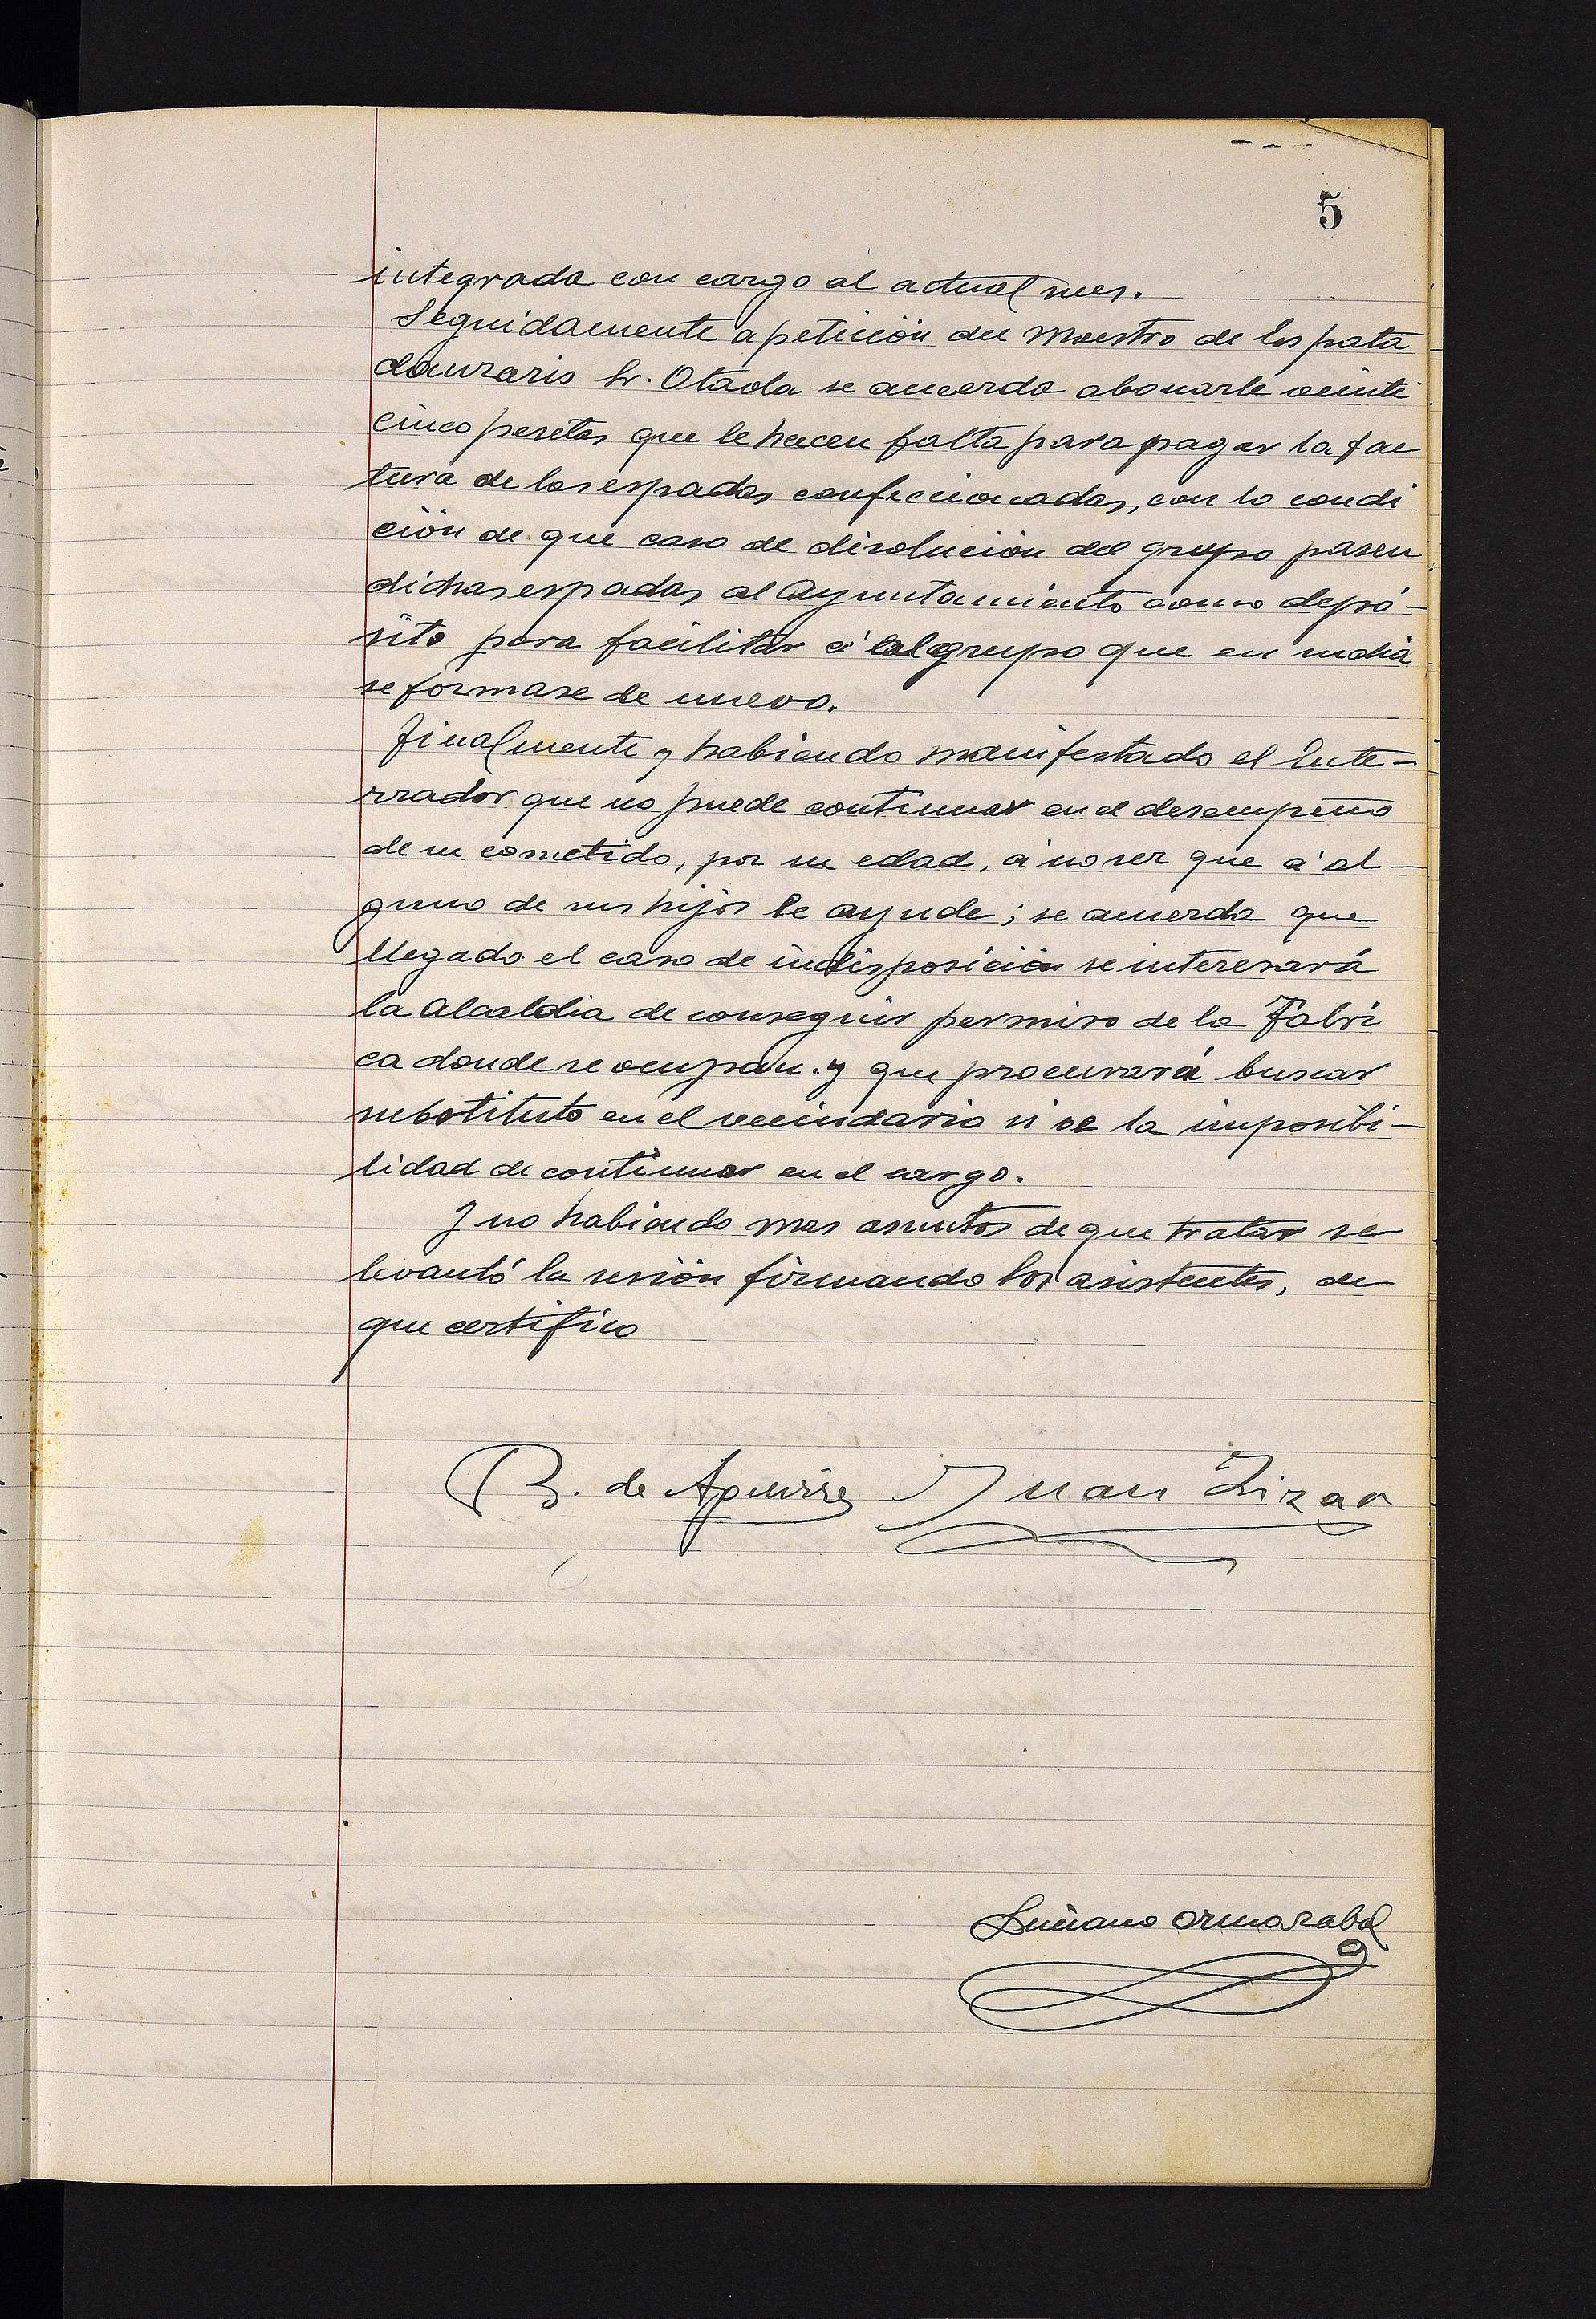 5
integrada con cargo al actual mes.
Seguidamente a petición del Maestro de los pata
danzaris Sr. Olaola se acuerda abonarle veinti
cinco pesetas que le hacen falta para pagar la fac
tura de las espadas confeccionadas, con la condi
ción de que caso de disolución del grupo pasen
dichas espadas al Ayuntamiento como depó-
sito para facilitar á al grupo que en su dia
se formase de nuevo.
Finalmente y habiendo manifestado el Ente-
rrador que no puede continuar en el desempeño
de su cometido, por su edad, á no ser que á al-
guno de sus hijos le ayude; se acuerda que
llegado el caso de indisposición se interesará
la Alcaldia de conseguir permiso de la Fabri
ca donde se ocupan y que procurará buscar
substituto en el vecindario si ve la imposibi-
lidad de continuar en el cargo.
Y no habiendo mas asuntos de que tratar se
levantó la sesión firmando los asistentes, de
que certifico
B. de Aguirre Juan Lizar
Luciano Ormazabal